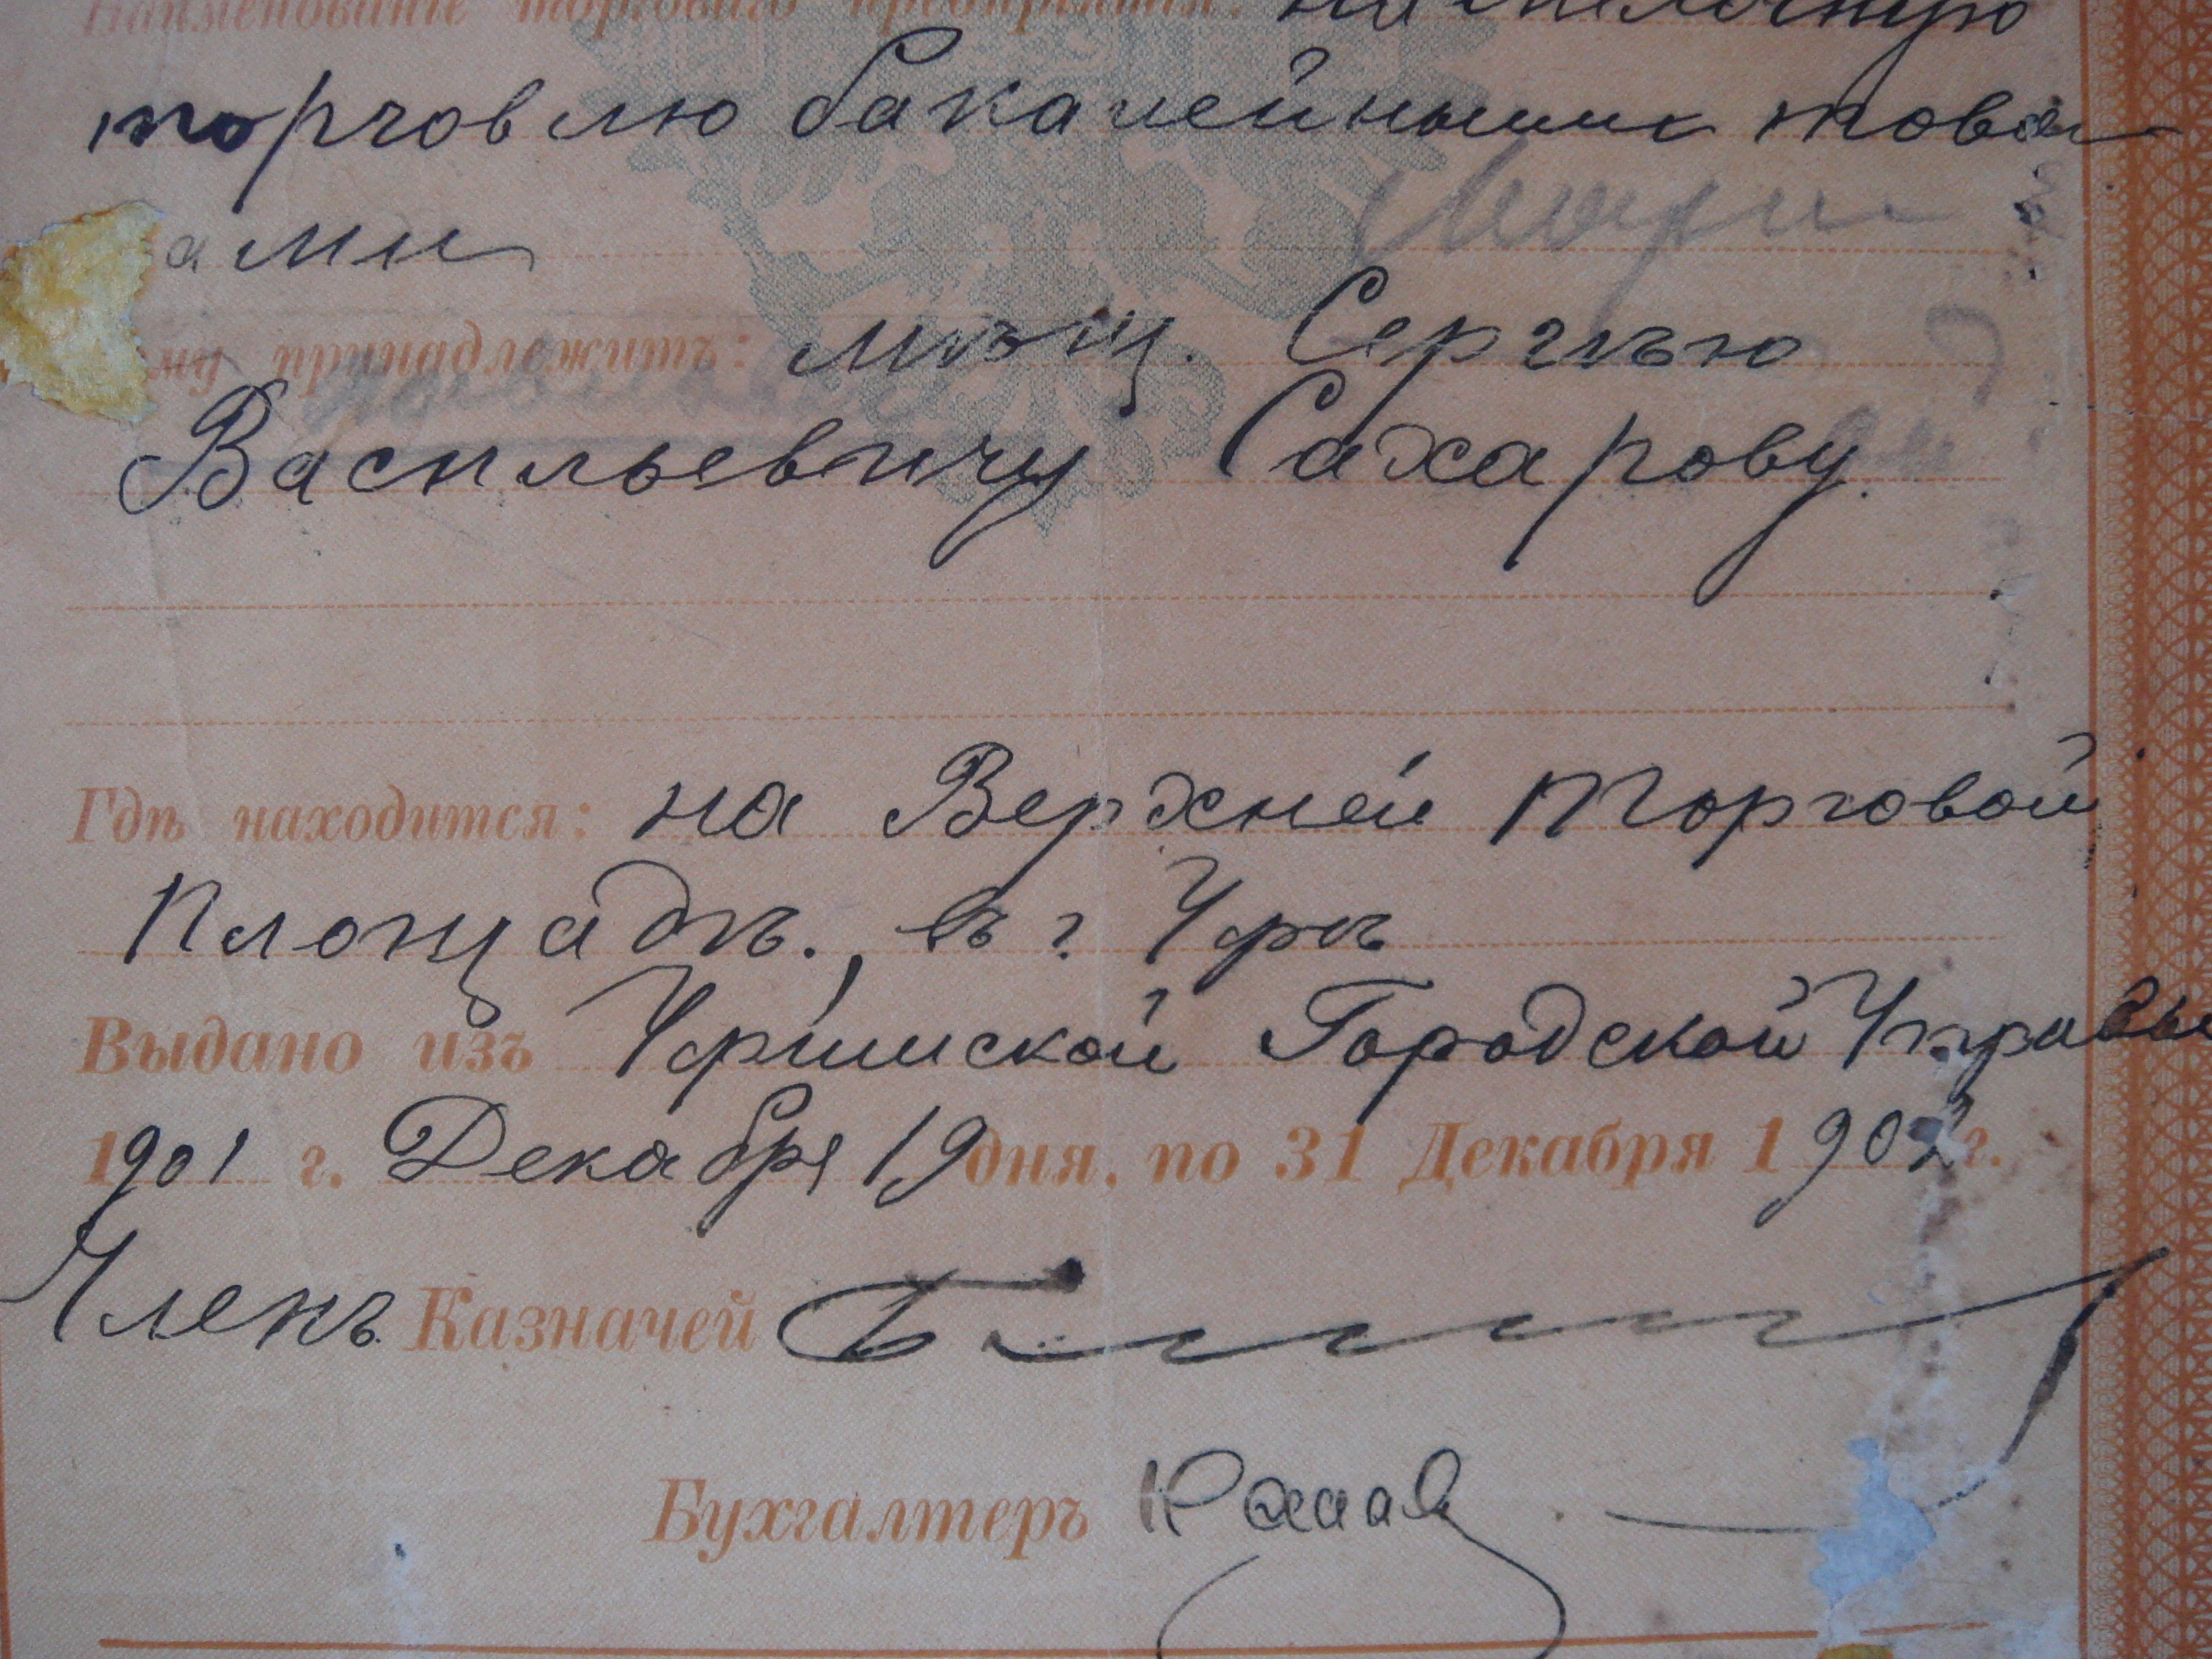 Наименованіе торговаго предпріятія: на мелочную
торговлю бакалейными това
рами
му принадлежитъ: мѣщ. Сергѣю
Васильевичу Сахарову.
Гдѣ находится: на Верхней торговой
площадѣ., въ г. Уфѣ
Выдано изъ Уфимской Городской Управы
1901 г. Декабря 19 дня, по 31 Декабря 1902 г.
Членъ Казначей
Бухгалтеръ